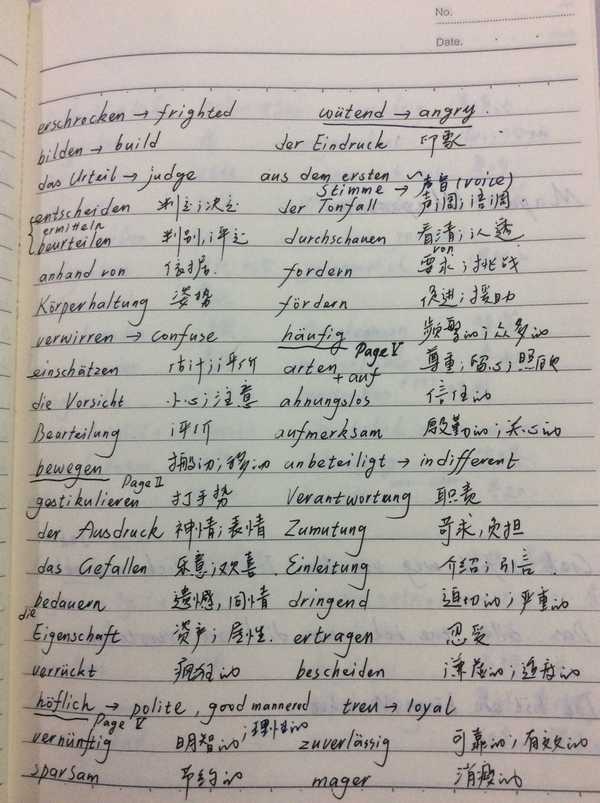 No.
Date.
erschrocken → frighted wütend → angry.
bilden → build der Eindruck 印象
das Urteil → judge aus dem ersten
Stimme → 声音(voice)
entscheiden 判定;决定 der Tonfall 声调;语调
ermitteln
beurteilen 判别,评定 durchschauen 看清;认透
anhand von 依据. fordern von 要求;挑战
Körperhaltung 姿势 fördern 促进;援助
verwirren → confuse häufig 频繁的;众多的
Page V
einschätzen 估计;评价 arten + auf 尊重;留心;照顾
die Vorsicht 小心;注意 ahnungslos 信任的
Bearteilung 评价 aufmerksam 殷勤的;关心的
bewegen 搬动;移动 unbeteiligt → indifferent
Page II
gastikulieren 打手势 Verantwortung 职责
der Ausdruck 神情;表情 Zumutung 苛求,负担
das Gefallen 乐意;欢喜. Einleitung 介绍;引言.
bedauern 遗憾,同情 dringend 迫切的;严重的
die
Eigenschaft 资产;属性. ertragen 忍受
verrückt 疯狂的 bescheiden 谦虚的;适度的
höflich → polite, good mannered treu → loyal
Page V
vernünftig 明智的;理性的 zuverlässig 可靠的;有效的
sparsam 节约的 mager 消瘦的